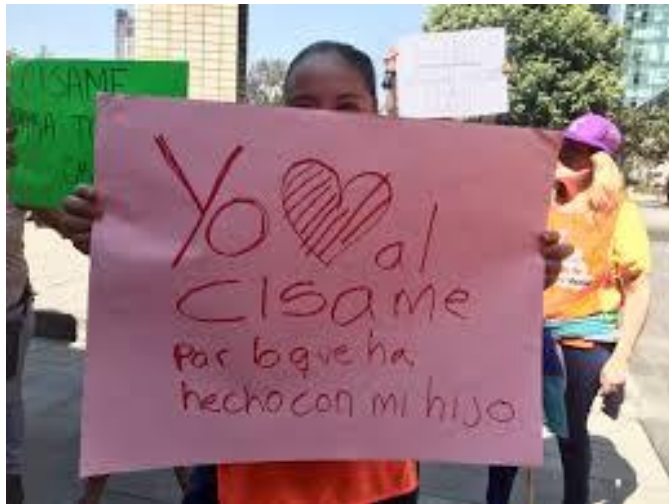 CISAME
Yo ♥ al
CISAME
por lo que ha
hecho con mi hijo